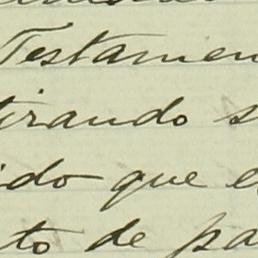 Testamen
tirando s
ido que e
to de pa